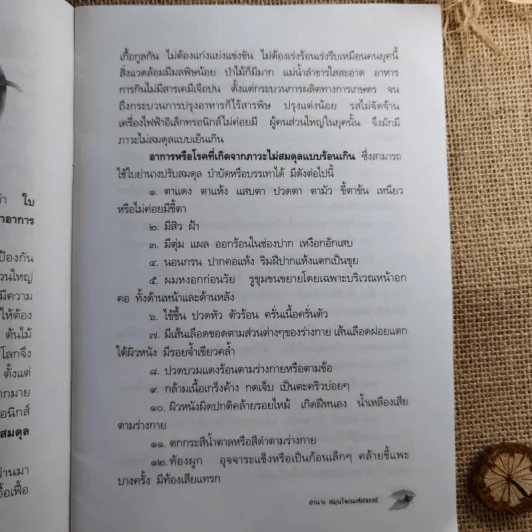 า ใบ
าอาการ
ป้องกัน
วนใหญ่
มีความ
ให้ต้อง
ต้นไม้
โลกจึง
ตั้งแต่
ากมาย
อนิกส์
สมดุล
ผ่านมา
อื้อเฟื้อ
เกื้อกูลกัน ไม่ต้องแก่งแย่งแข่งขัน ไม่ต้องเร่งร้อนเร่งรีบเหมือนคนยุคนี้
สิ่งแวดล้อมมีมลพิษน้อย ป่าไม้ก็มีมาก แม่น้ำลำธารใสสะอาด อาหาร
การกินไม่มีสารเคมีเจือปน ตั้งแต่กระบวนการผลิตทางการเกษตร จน
ถึงกระบวนการปรุงอาหารก็ไร้สารพิษ ปรุงแต่งน้อย รสไม่จัดจ้าน
เครื่องไฟฟ้าอิเล็กทรอนิกส์ไม่ค่อยมี ผู้คนส่วนใหญ่ในยุคนั้น จึงมักมี
ภาวะไม่สมดุลแบบเย็นเกิน
อาการหรือโรคที่เกิดจากภาวะไม่สมดุลแบบร้อนเกิน ซึ่งสามารถ
ใช้ใบย่านางปรับสมดุล บำบัดหรือบรรเทาได้ มีดังต่อไปนี้
๑. ตาแดง ตาแห้ง แสบตา ปวดตา ตามัว ขี้ตาข้น เหนียว
หรือไม่ค่อยมีขี้ตา
๒. มีสิว ฝ้า
๓. มีตุ่ม แผล ออกร้อนในช่องปาก เหงือกอักเสบ
๔. นอนกรน ปากคอแห้ง ริมฝีปากแห้งแตกเป็นขุย
๕. ผมหงอกก่อนวัย รูขุมขนขยายโดยเฉพาะบริเวณหน้าอก
คอ ทั้งด้านหน้าและด้านหลัง
๖. ไข้ขึ้น ปวดหัว ตัวร้อน ครั่นเนื้อครั่นตัว
๗. มีเส้นเลือดขอดตามส่วนต่างๆของร่างกาย เส้นเลือดฝอยแตก
ใต้ผิวหนัง มีรอยจ้ำเขียวคล้ำ
๘. ปวดบวมแดงร้อนตามร่างกายหรือตามข้อ
๙. กล้ามเนื้อเกร็งค้าง กดเจ็บ เป็นตะคริวบ่อยๆ
๑๐. ผิวหนังผิดปกติคล้ายรอยไหม้ เกิดฝีหนอง น้ำเหลืองเสีย
ตามร่างกาย
๑๑. ตกกระสีน้ำตาลหรือสีดำตามร่างกาย
๑๒. ท้องผูก อุจจาระแข็งหรือเป็นก้อนเล็กๆ คล้ายขี้แพะ
บางครั้ง มีท้องเสียแทรก
ย่านาง สมุนไพรมหัศจรรย์